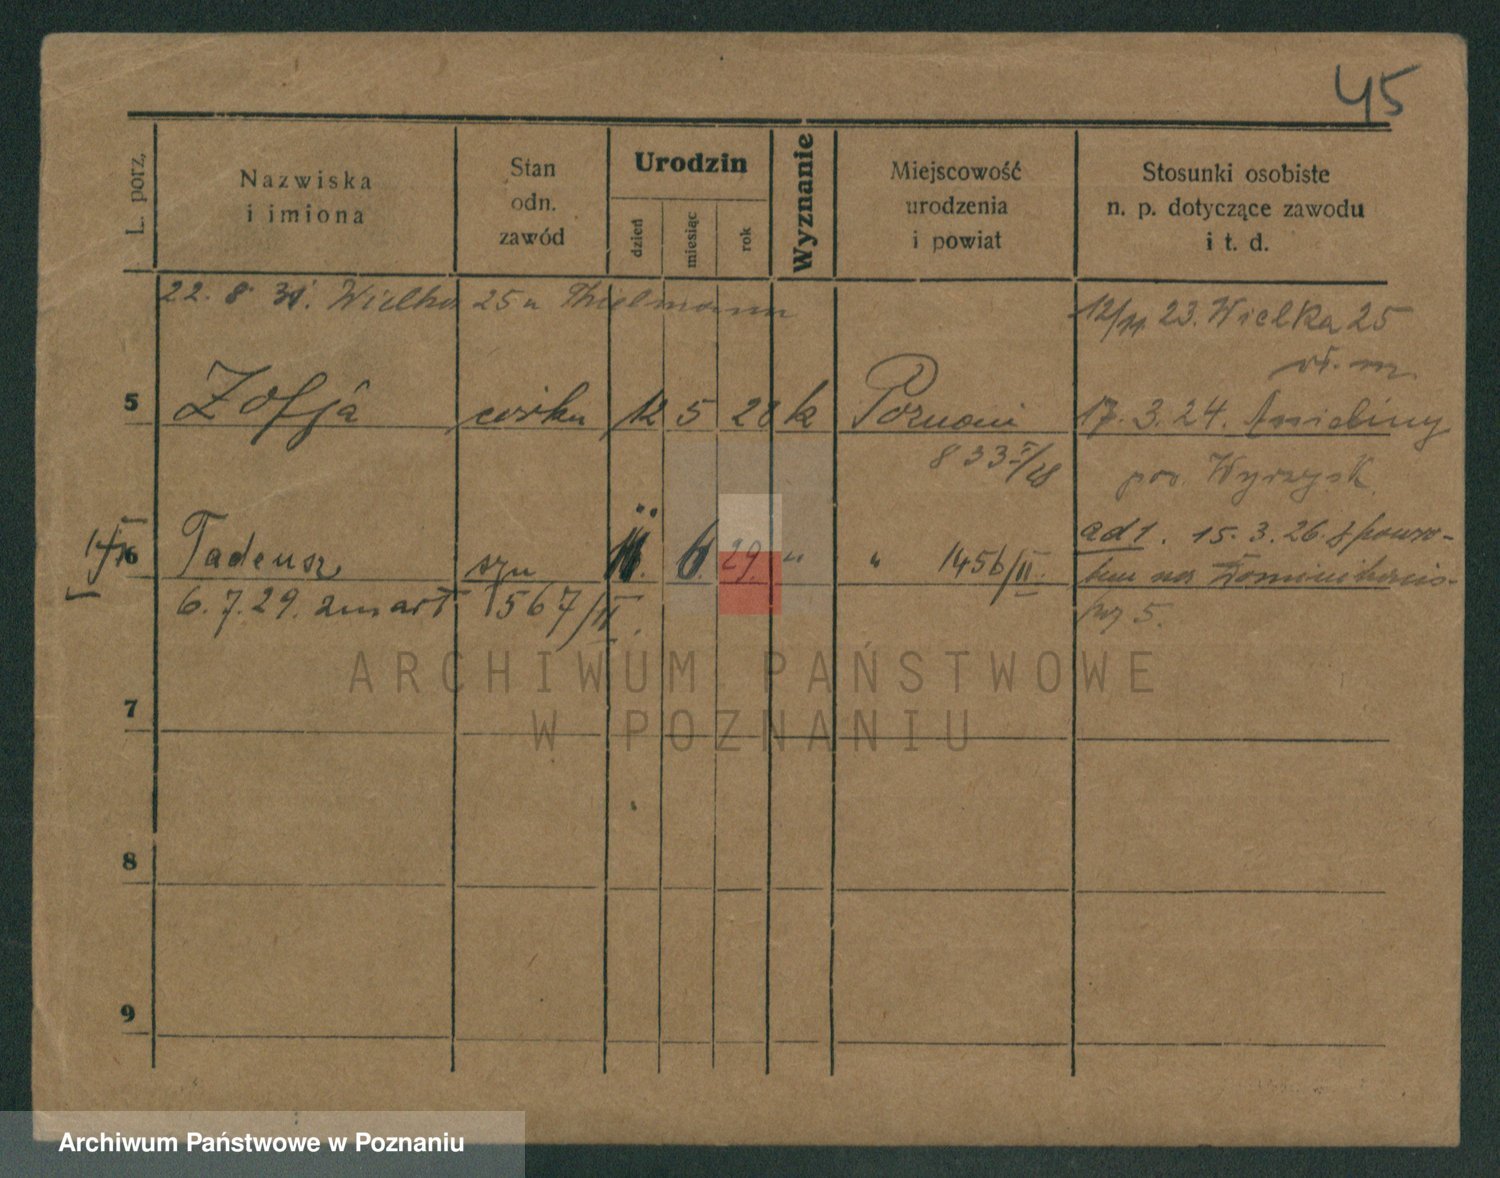 45
L. porz.
Nazwiska
i imiona
Stan
odn.
zawód
Urodzin
dzień
miesiąc
rok
Wyznanie
Miejscowość
urodzenia
i powiat
Stosunki osobiste
n. p. dotyczące zawodu
i t. d.
22. 8 31. Wielka 25 u Thielmann
12/11 23. Wielka 25
5 Zofja córka 12 5 28 k Poznań
17. 3. 24.
833 I/28
pow. Wyrzysk.
6 Tadeusz syn 6. 29. " " 1456/II.
ad 1. 15. 3. 26. z powro-
tem na Dominikańs-
ką 5.
6. 7. 29. zmarł 1567/II.
ARCHIWUM PAŃSTWOWE
W POZNANIU
7
8
9
Archiwum Państwowe w Poznaniu